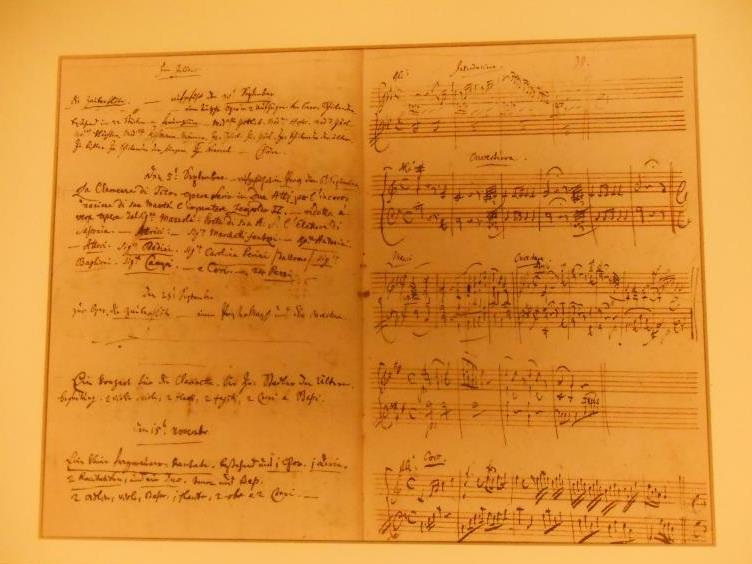 Die Zauberflöte. — aufgeführt den 30t September
Oper in 2 Aufzügen. von Eman. Schikaneder
bestehend in 22 Stücken
Chöre.
Den 5t September. — aufgeführt in Prag den 6t September
La Clemenza di Tito. opera seria in due Atti per l'incoro-
nazione di sua Maestà l'imperatore Leopoldo II. — ridotta à
vera opera dal Sigre Mazzolà. Poeta di sua A: S: l'Elettore di
Sassonia. — Attrici: — Sigra Marchetti fantozi. — Sigra Antonini.
— Attori. Sigre Bedini. Sigra Carolina Perini / da Uomo / Sigre
Baglioni. Sigre Campi. — e Cori. — 24 Pezzi.
Den 28t September
zur Oper. die Zauberflöte — einen Priestermarsch und die Overture
Ein Konzert für die Clarinette. für Hr. Stadler den Ältern.
begleitung. 2 violini, viola, 2 flauti, 2 fagotti, 2 Corni e Bassi.
den 15t November
Eine kleine freymaurer-kantate. bestehend aus 1 Chor. 1 Arie.
2 Recitativen, und ein Duo. tenor und Bass.
2 violini, viola, Basso, 1 flauto, 2 oboe e 2 Corni. —
Introduction.
Ouvertura.
Marcia
Ouverture
Coro.